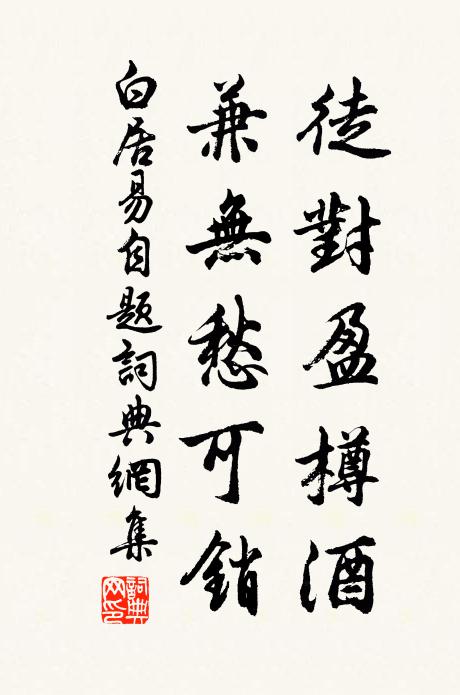 徒對盈樽酒
兼無愁可銷
白居易自題詞典網集
詞典
网印